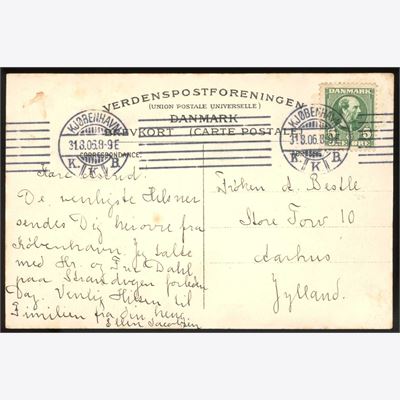 VERDENSPOSTFORENINGEN
(UNION POSTALE UNIVERSELLE)
DANMARK
BREVKORT (CARTE POSTALE)
CORRESPONDANCE:
KJØBENHAVN
31.8.06.8-9E
K K B
KJØBENHAVN
31.8.06.8-9E
K K B
DANMARK
5 5
ØRE
Kære Astrid!
De venligste Hilsner
sendes Dig herovre fra
København. Jeg talte
med Hr. og Fru Dahl
paa Strandvejen forleden
Dag. Venlig Hilsen til
Familien fra din heng.
Ellen Jacobsen
Frøken A. Bestle
Store Torv 10
Aarhus
Jylland.